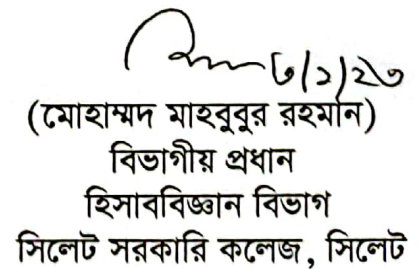 ৩/১/২৩
(মোহাম্মদ মাহবুবুর রহমান)
বিভাগীয় প্রধান
হিসাববিজ্ঞান বিভাগ
সিলেট সরকারি কলেজ, সিলেট